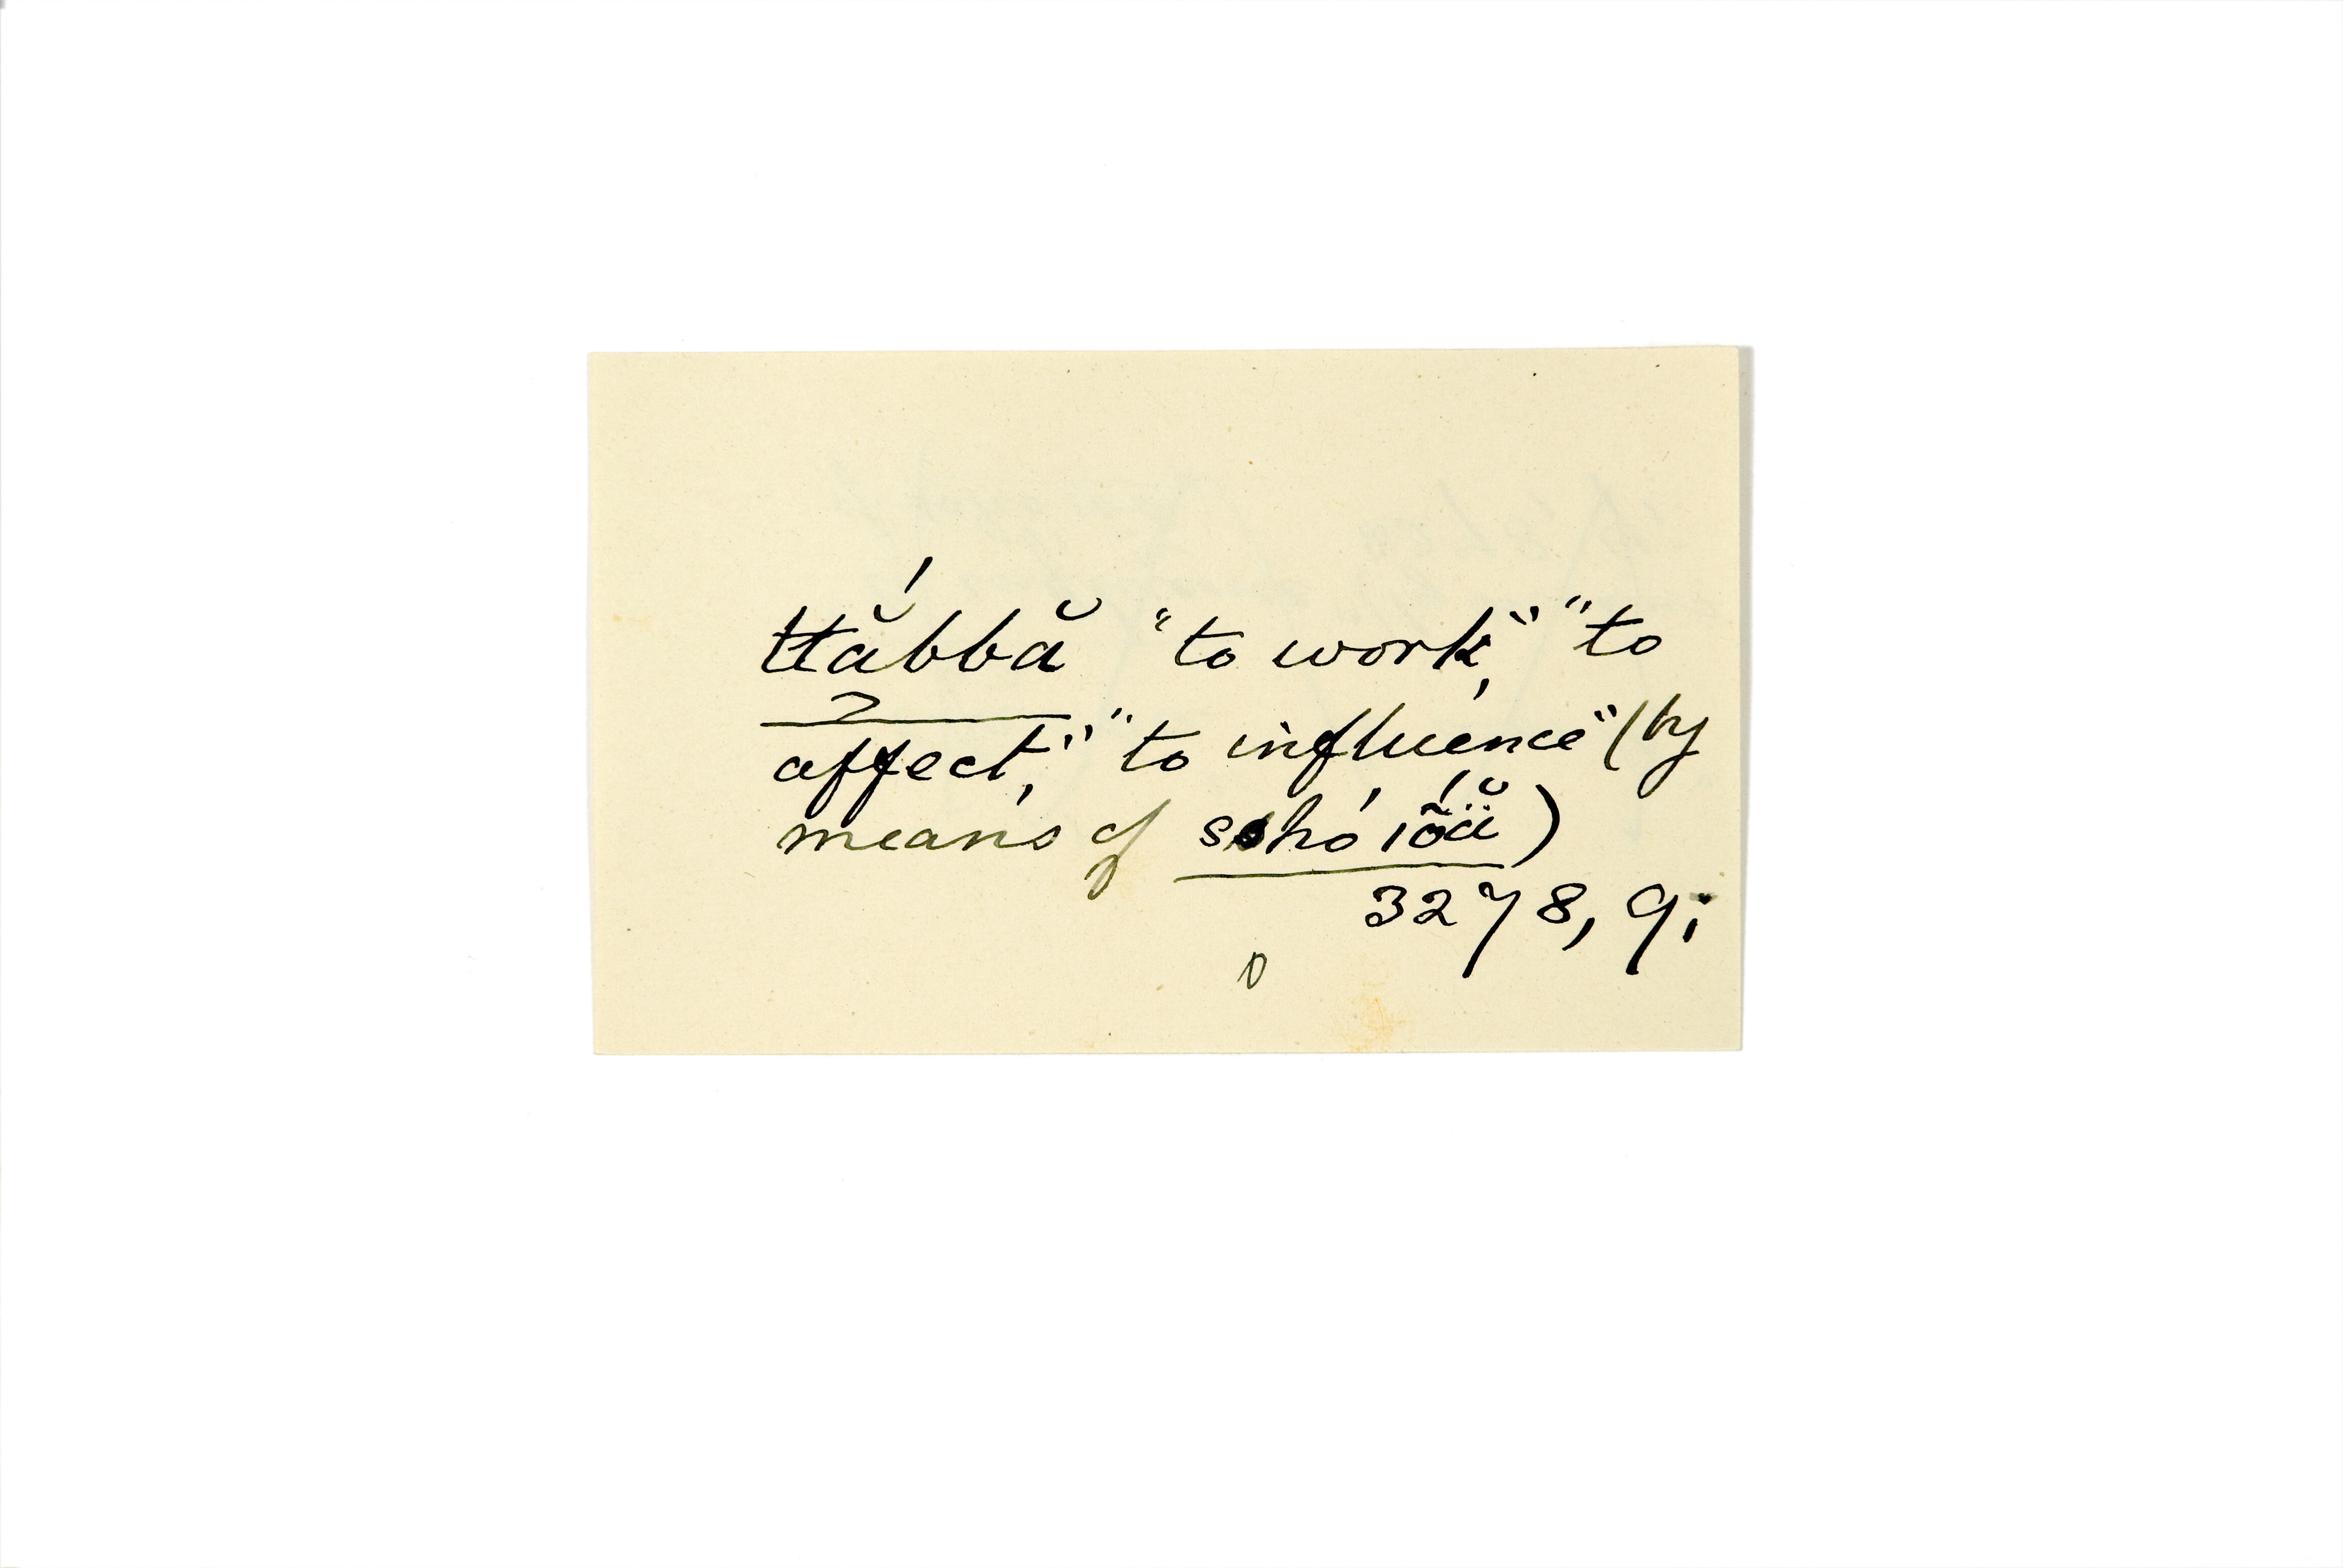 ttắbbă "to work," "to
affect," "to influence" (by
means of sohó |õä̆́)
3278, 9;